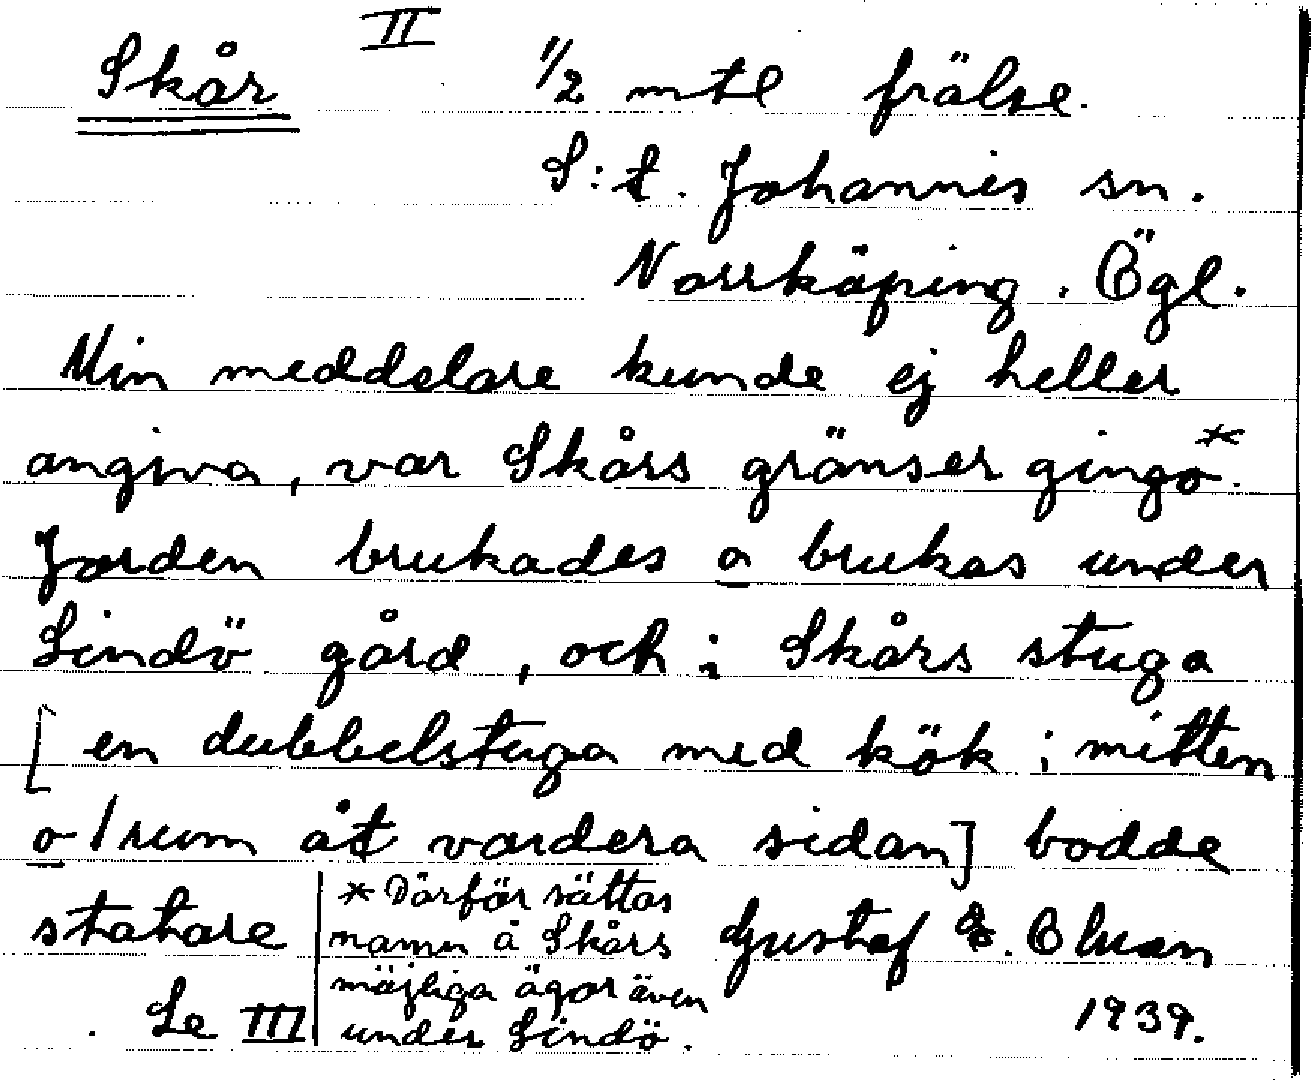 II
Skår 1/2 mtl frälse.
S:t. Johannis sn.
Norrköping. Ögl.
Min meddelare kunde ej heller
angiva, var Skårs gränser gingo*.
Jorden brukades o brukas under
Lindö gård, och i Skårs stuga
[en dubbelstuga med kök i mitten
o 1 rum åt vardera sidan] bodde
statare
Se III
* Därför sättas
namn å Skårs
möjliga ägor även
under Lindö.
Gustaf
1939.